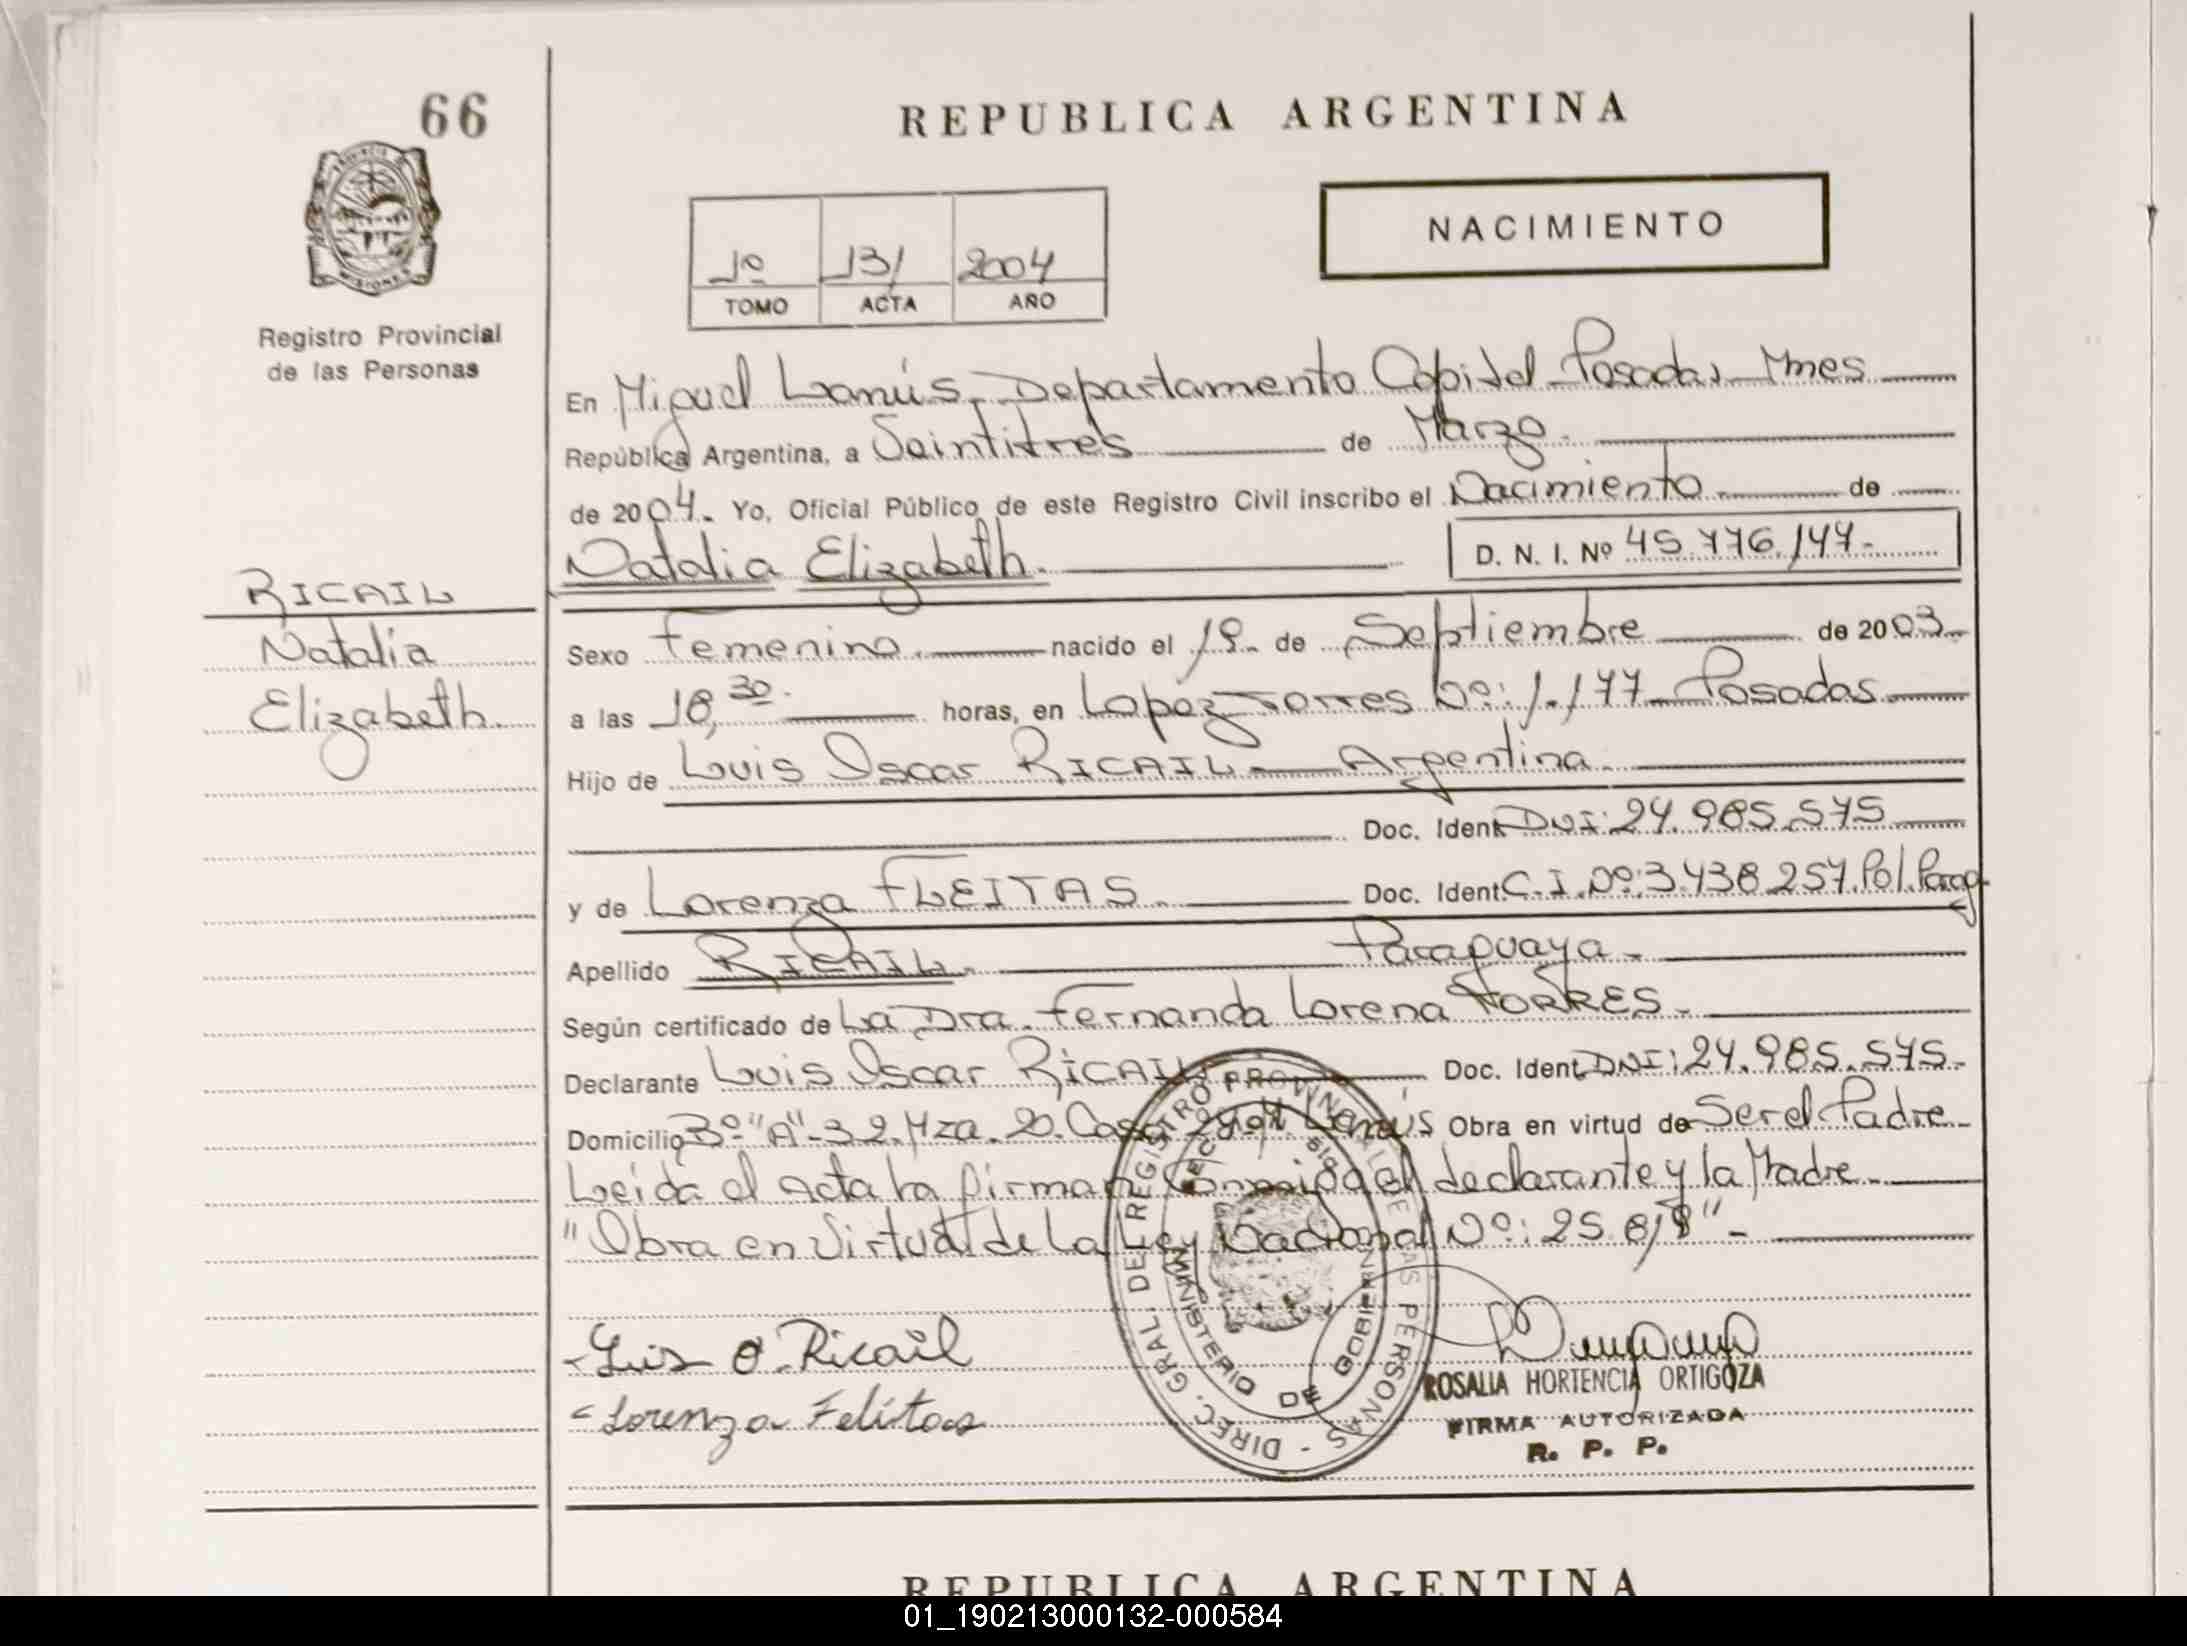 66
REPUBLICA ARGENTINA
NACIMIENTO
1º 131 2004
TOMO ACTA AÑO
Registro Provincial
de las Personas
En Miguel Lanús, Departamento Capital Posadas Mnes
República Argentina, a Veintitres de Marzo.
de 2004. Yo, Oficial Público de este Registro Civil inscribo el Nacimiento de
Natalia Elizabeth. D. N. I. Nº 45.776.177.-
RICAIL
Natalia
Elizabeth.
Sexo Femenino. nacido el 19. de Septiembre de 2003.
a las 18,30. horas, en Lopez Torres Nº: 1.177 Posadas.
Hijo de Luis Oscar RICAIL Argentina.
Doc. Ident. DNI: 24.985.575
y de Lorenza FLEITAS. Doc. Ident. C.I. Nº: 3.438.257. Pol. Parag
Apellido RICAIL. Paraguaya.
Según certificado de La Dra. Fernanda Lorena TORRES.
Declarante Luis Oscar RICAIL Doc. Ident. DNI: 24.985.575.
Domicilio Bº "A"-32. Mza. 20. Casa Lanús Obra en virtud de Ser el Padre.
Leída el acta la firman Conmigo el declarante y la Madre.
"Obra en Virtud de La Ley Nacional Nº: 25.819".-
Luis O. Ricail
Lorenza Felitas
DIREC. GRAL. DEL REGISTRO PROVINCIAL DE LAS PERSONAS
MINISTERIO DE GOBIERNO
ROSALIA HORTENCIA ORTIGOZA
FIRMA AUTORIZADA
R. P. P.
REPUBLICA ARGENTINA
01_190213000132-000584